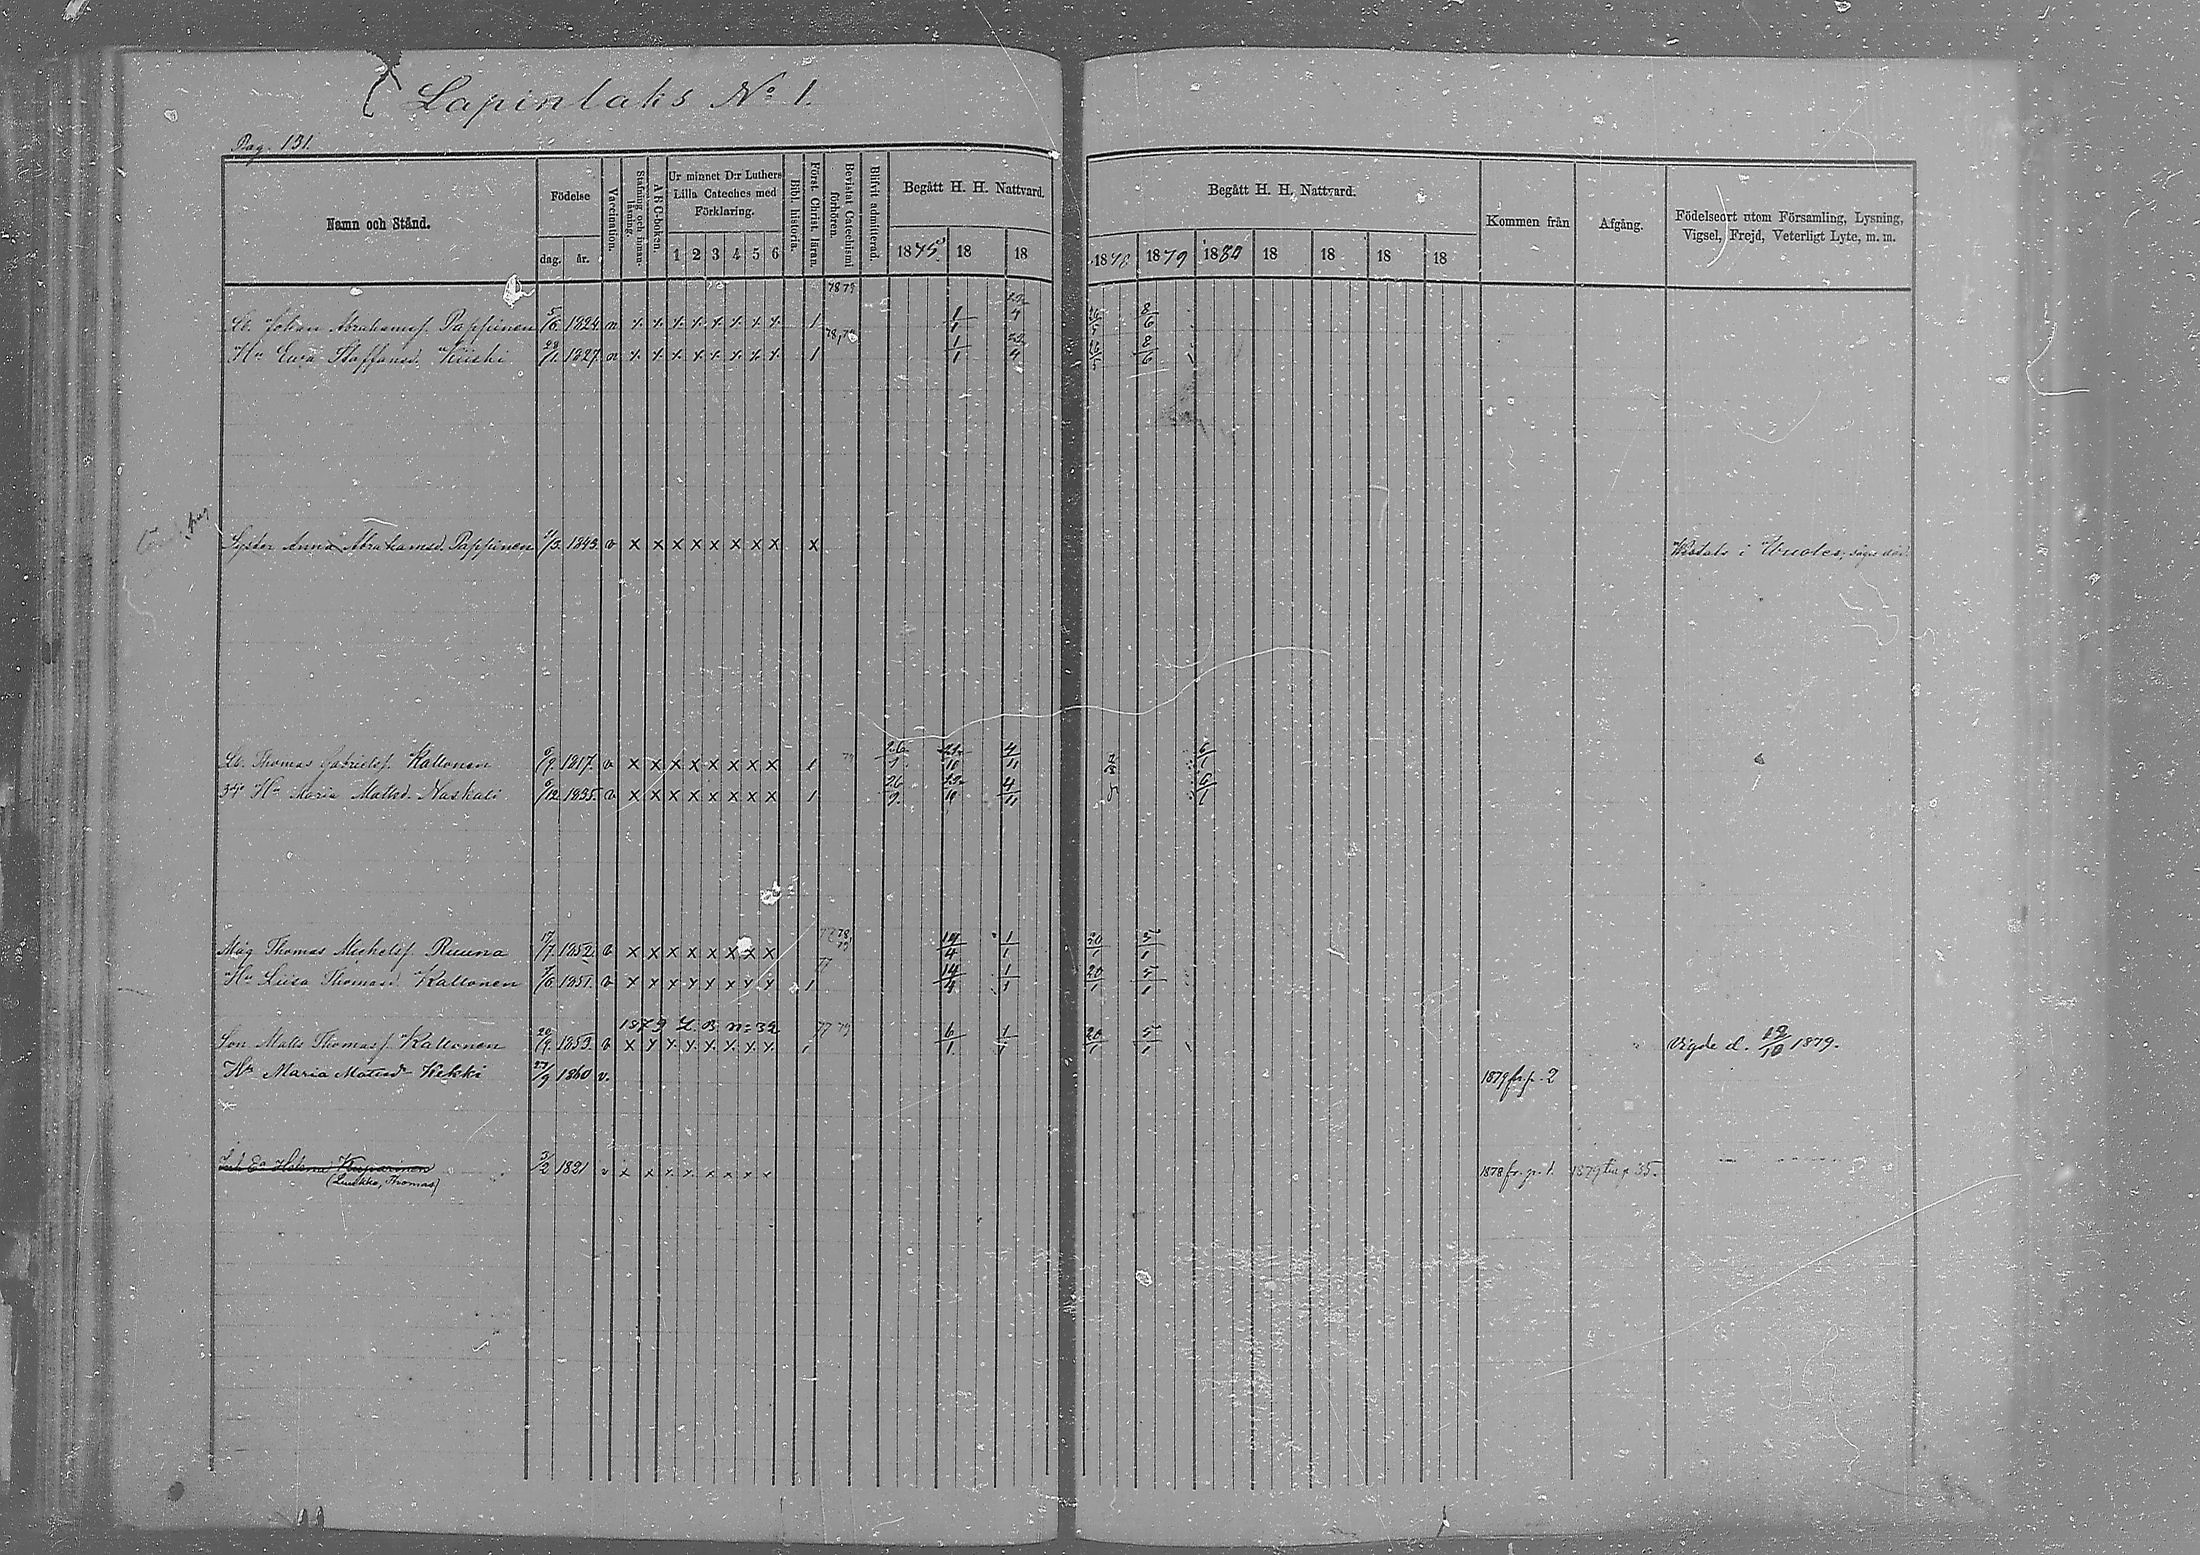 Lapinlaks No 1.
Pag. 131.
Namn och Stånd. Födelse dag. år. Vaccination. Stafning och innanläsning. A B C-boken. Ur minnet D:r Luthers Lilla Cateches med Förklaring. 1 2 3 4 5 6 Bibl. historia. Först. Christ. läran. Bevistat Catechismi förhören. Blifvit admitterad. Begått H. H. Nattvard. 1875 18 18
Begått H. H. Nattvard. 1878 1879 1880 18 18 18 18 Kommen från Afgång. Födelseort utom Församling, Lysning, Vigsel, Frejd, Veterligt Lyte, m. m.
78 79
Johan Abrahamsf. Pappinen 5/6 1824 1 1/1 22/4 26/5 8/6
78, 79
Hu Eva Staffansd. Kiiski 28/1 1827 1 1/1 22/4 26/5 8/6
Syster Anna Abrahamsd. Pappinen 1843. v x x x x x x x x x Vistats i Wuoles, säges död
Thomas Gabrielsf. Kallonen 6/9 1817. v x x x x x x x x 1 79 4/11 6/1
Hu Maria Mattsd. Naskali 6/12 1835. v x x x x x x x x 1 26/9 4/11 6/1
Måg Thomas Michelsf. Ruuna 17/7 1852. v x x x x x x x x 78 79 14/4 1/1 20/1 5/1
Hu Liisa Thomasd. Kallonen 1851. v x x x x x x x x 1 77 14/4 1/1 20/1 5/1
1879 L. B. n: 32
Son Matts Thomasf. Kallonen 20/9 1853. v x x x x x x x x 1 77 79 6/1 1/1 20/1 5/1 Vigde d. 12/10 1879.
Hu Maria Matsdr Kekki 27/9 1860 v. 1879 fr. p. 2
Enk. Ea Helena Kuparinen 3/2 1821 v x x x x x x x x 1878 fr. p. 1. 1879 till p. 35.
(Luukka, Thomas)